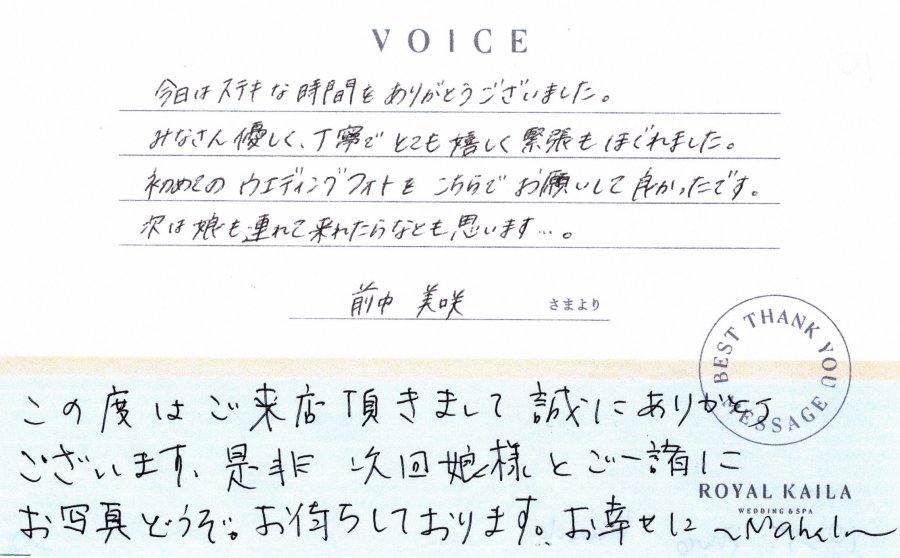 VOICE
今日はステキな時間をありがとうございました。
みなさん優しく、丁寧でとても嬉しく緊張もほぐれました。
初めてのウエディングフォトをこちらでお願いして良かったです。
次は娘も連れて来れたらなとも思います…。
前中 美咲 さまより
BEST THANK YOU MESSAGE
この度はご来店頂きまして誠にありがとう
ございます、是非 次回娘様とご一諸に
ROYAL KAILA
WEDDING & SPA
お写真どうぞ。お待ちしております。お幸せに